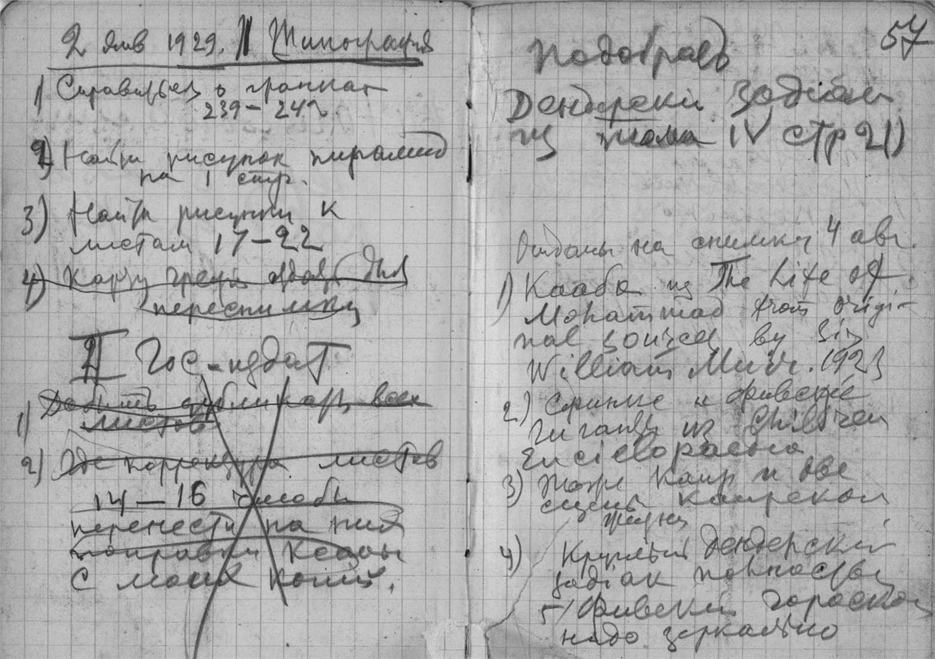 2 янв 1929. I Типография
1) Справиться о гранках
239 – 242.
2) Найти рисунок пирамид
на 1 стр.
3) Найти рисунки к
листам 17–22
4) Карту для
пересылки
II Гос-издат
1) Добыть дубликаты всех
листов
2) Где корректура листов
14–16 чтобы
перенести на них
поправки
с моей копии.
57
Подобрать
Дендерский Зодиак
из тома IV стр 21)
Отданы на снимки 4 авг.
1) Кааба из The Life of
Mohammad from origi-
nal sources by Sir
William Muir. 1923
2) Сфинкс и фивские
гиганты из Children
Enciclopaedia
3) Тоже Каир и две
сцены каирской
жизни
4) Круглый Дендерский
зодиак
5) Фивский гороскоп
надо зеркально